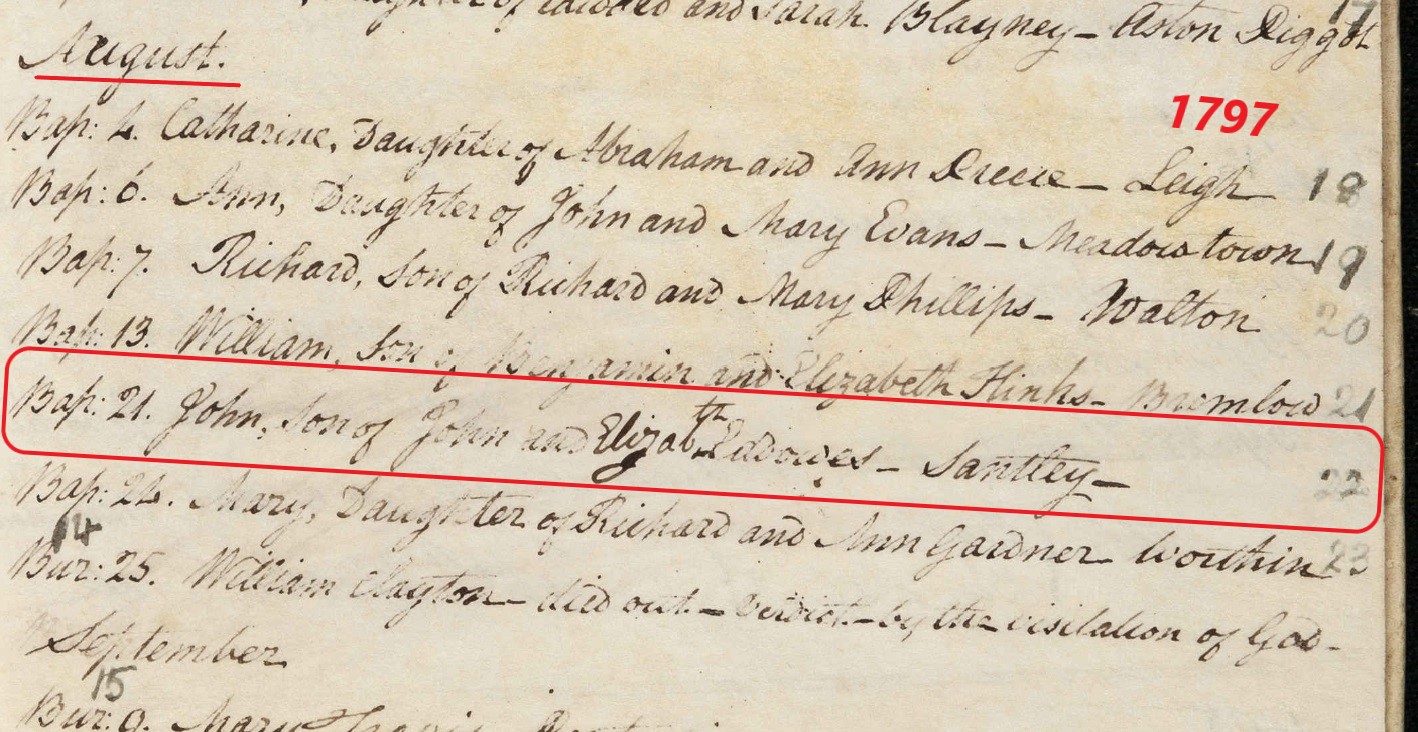 of and Sarah Blayney - Aston Piggot 17
August.
1797
Bap: 4. Catharine, Daughter of Abraham and Ann Preece - Leigh 18
Bap: 6. Ann, Daughter of John and Mary Evans - Meadowtown 19
Bap: 7. Richard, Son of Richard and Mary Phillips - Walton 20
Bap: 13. William, Son of Benjamin and Elizabeth Hinks - Bromlow 21
Bap: 21. John, Son of John and Elizabth Eddowes - Santley - 22
Bap: 24. Mary, Daughter of Richard and Ann Gardner Worthin 23
14
Bur: 25. William Clayton - died out - verdict - by the visitation of God -
September
15
Bur: 9. Mary